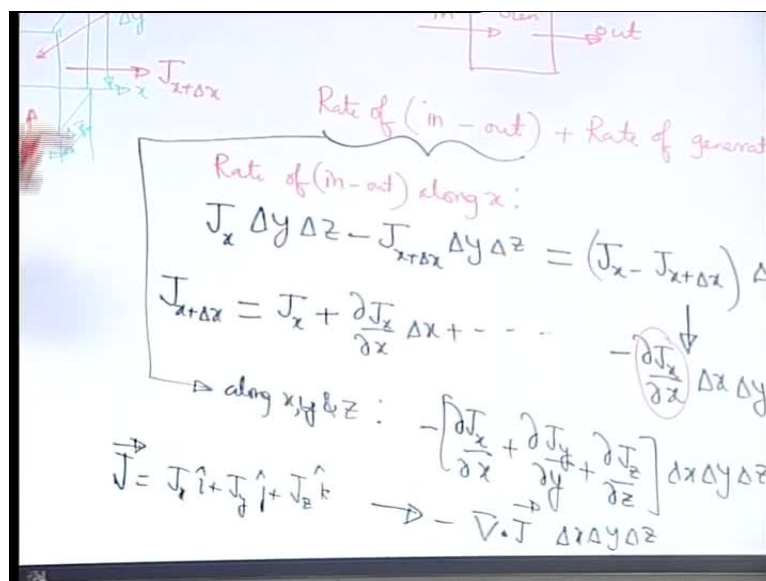 Δy
J_{x+Δx}
x
in
out
Rate of (in - out) + Rate of generat
Rate of (in-out) along x:
J_x Δy Δz - J_{x+Δx} Δy Δz = (J_x - J_{x+Δx}) Δ
J_{x+Δx} = J_x + ∂J_x/∂x Δx + - - -
- ∂J_x/∂x Δx Δy
along x, y & z : - [∂J_x/∂x + ∂J_y/∂y + ∂J_z/∂z] Δx Δy Δz
J⃗ = J_x î + J_y ĵ + J_z k̂ → - ∇·J⃗ Δx Δy Δz